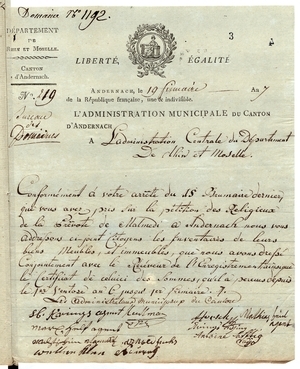 Domaines N.° 1192.
DÉPARTEMENT
DE
RHIN ET MOSELLE.
CANTON
d'Andernach.
N.° 219
Bureau
des
Domaines
3
LIBERTÉ, ÉGALITÉ
ANDERNACH, le 19 frimaire An 7
de la République française, une et indivisible.
L'ADMINISTRATION MUNICIPALE DU CANTON
D'ANDERNACH
A L'administration Centrale du Département
De Rhin et Moselle.
Conformément à votre arrêté du 15 Brumaire dernier,
que vous avez pris sur la pétition des Religieux
de la Prévôté de Malmedi à Andernach nous vous
adressons cijoint Citoyens les Inventaires de leurs
biens Meubles et immeubles, que nous avons dressé
Conjointement avec le Receveur de l'Enregistrement ainsi que
le Certificat de celui des sommes, qu'il a perçues depuis
le 1er Ventose an 6 jusqu'au 1er frimaire 7.
Les administrateurs municipaux du Canton
agent